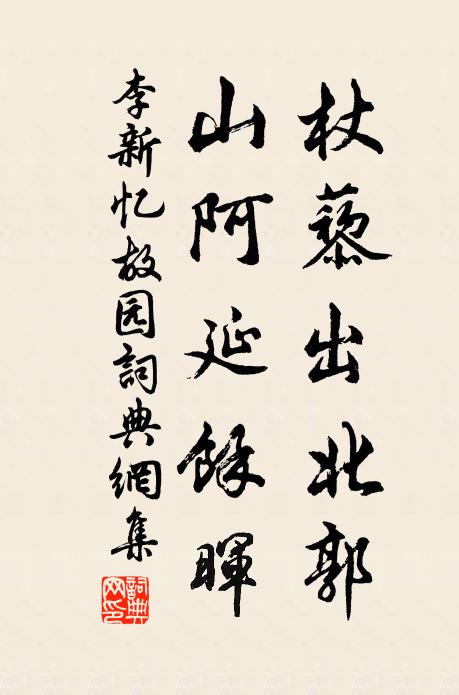 杖藜出北郭
山阿延餘暉
李新忆故园詞典網集
詞典網印